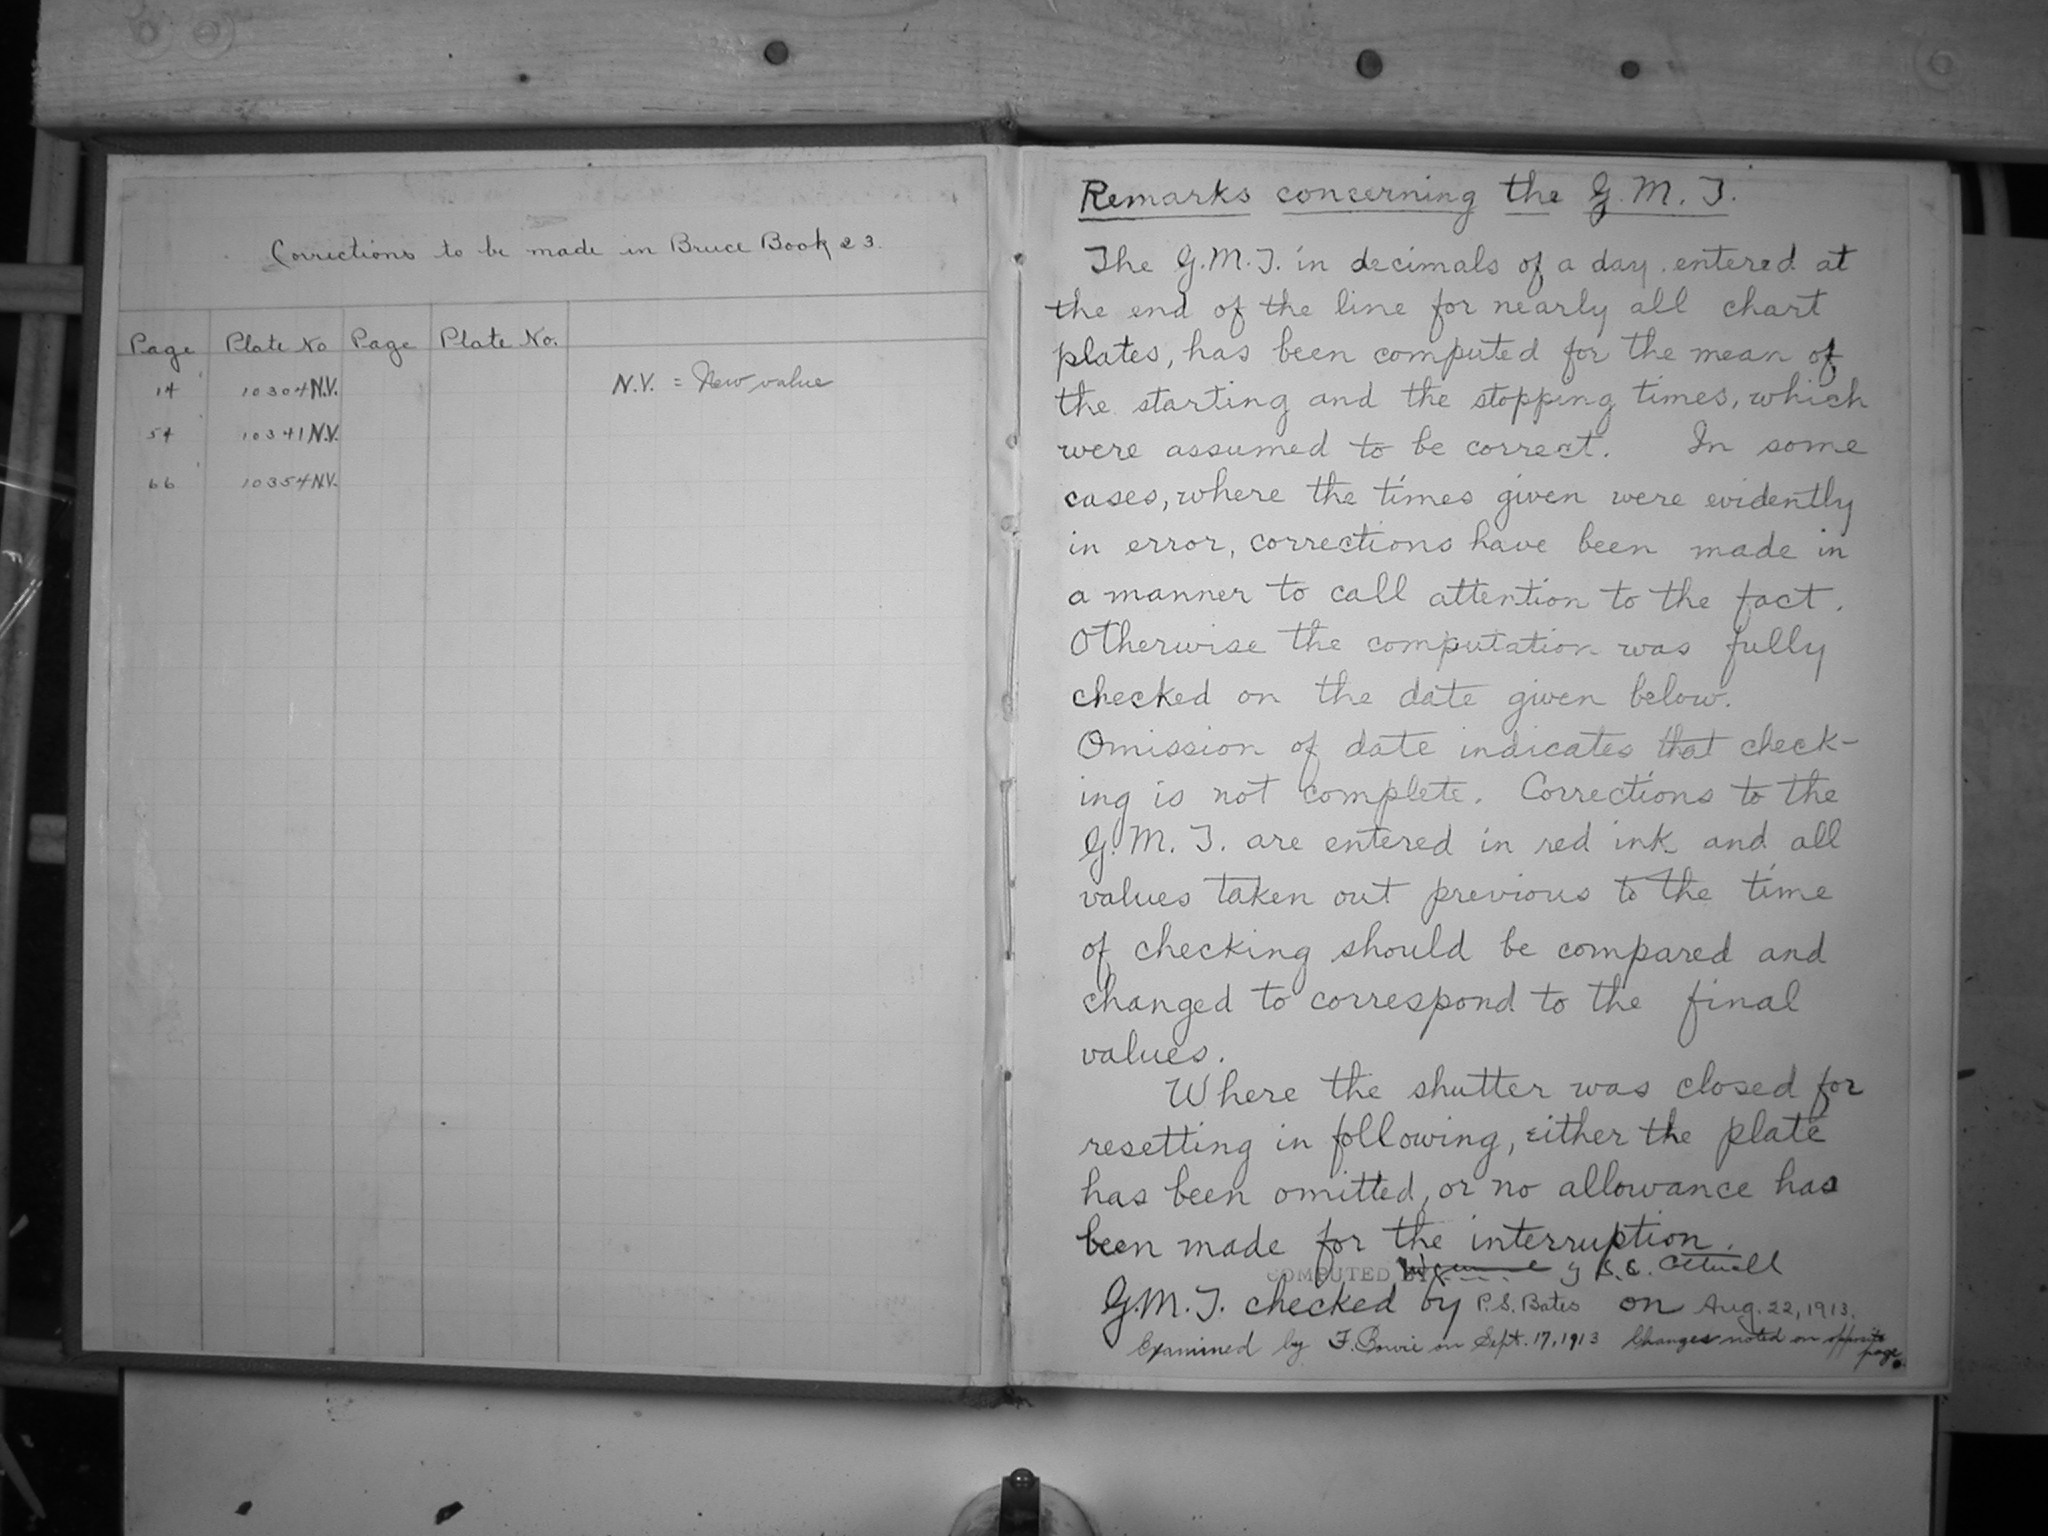 Corrections to be made in Bruce Book 23.
Page Plate No Page Plate No.
14 10304 N.V. N.V. = New value
54 10341 N.V.
66 10354 N.V.
Remarks concerning the G.M.T.
The G.M.T. in decimals of a day entered at
the end of the line for nearly all chart
plates, has been computed for the mean of
the starting and the stopping times, which
were assumed to be correct. In some
cases, where the times given were evidently
in error, corrections have been made in
a manner to call attention to the fact.
Otherwise the computation was fully
checked on the date given below.
Omission of date indicates that check-
ing is not complete. Corrections to the
G.M.T. are entered in red ink and all
values taken out previous to the time
of checking should be compared and
changed to correspond to the final
values.
Where the shutter was closed for
resetting in following, either the plate
has been omitted, or no allowance has
been made for the interruption.
COMPUTED BY
G.M.T. checked by P.S. Bates on Aug. 22, 1913.
Examined by F. Bowie on Sept. 17, 1913 Changes noted on opposite
page.